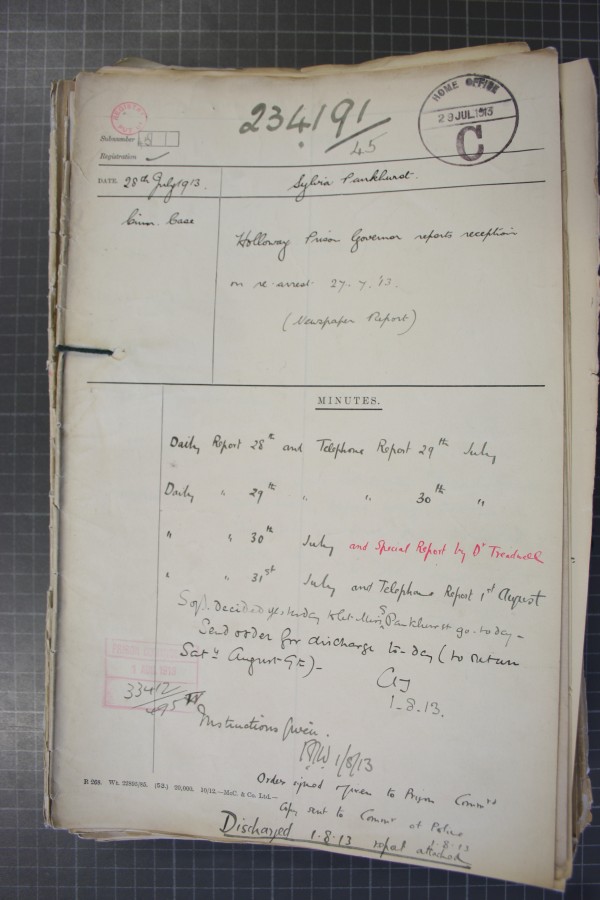 234191/45
HOME OFFICE
29 JUL. 1913
C
Subnumber 45
Registration ✓
DATE 28th July 1913.
Sylvia Pankhurst.
Crim. Case
Holloway Prison Governor reports reception
on re-arrest 27.7.13.
(Newspaper Report)
MINUTES.
Daily Report 28th and Telephone Report 29th July
Daily " 29th " " 30th "
" " 30th July and Special Report by Dr Treadwell
" " 31st July and Telephone Report 1st August
S. of S. decided yesterday to let Miss S Pankhurst go to-day –
Send order for discharge to-day (to return
Saty August 9th) –
1.8.13.
33412
Instructions given.
1/8/13
Order signed & given to Prison Commrs
Copy sent to Commr of Police
1.8.13
R 268. Wt. 22895/85. 20,000. 10/12.—McC. & Co. Ltd.—
Discharged 1.8.13 report attached